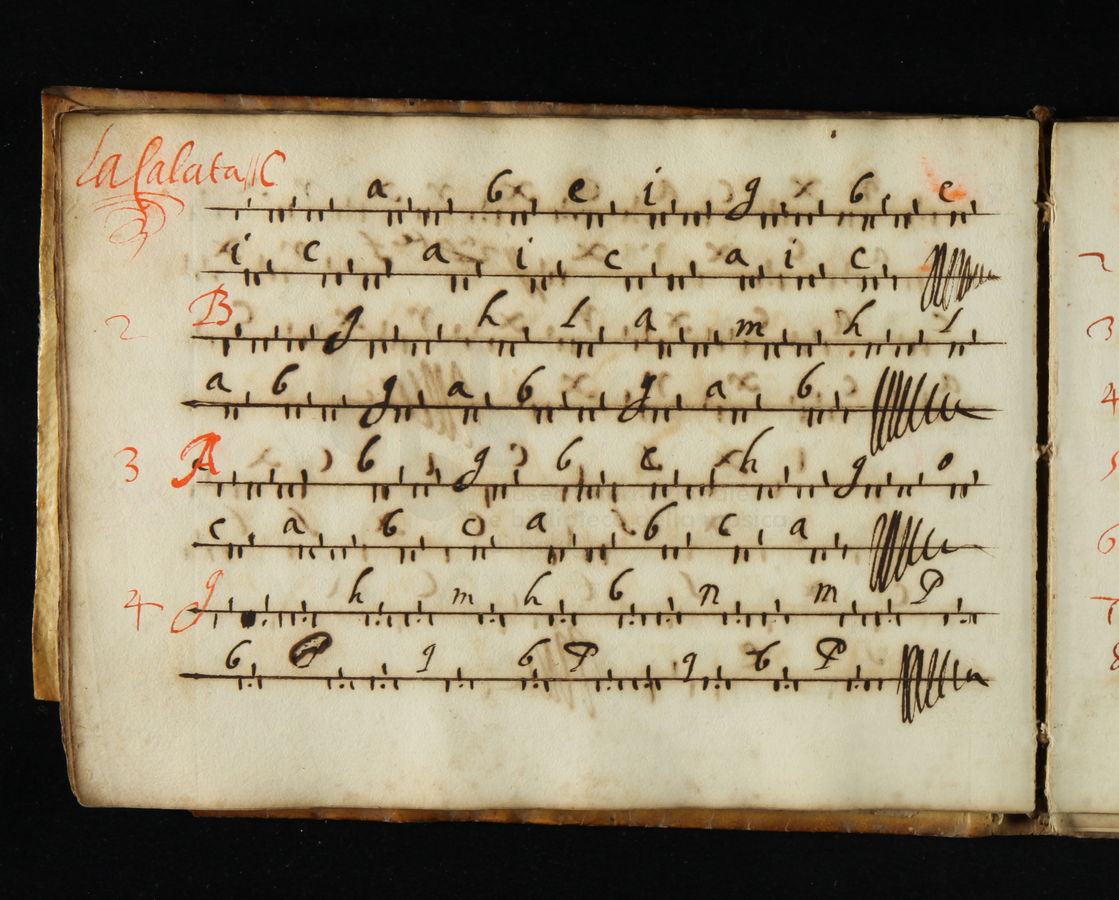 La Calata // C a 6 e i g 6 e
i c a i c a i c
2 B g h L a m h L
a 6 g a 6 g a 6
3 A 6 g 6 c h g o
c a 6 c a 6 c a
4 g h m h 6 n m P
6 g 6 P q 6 P
2
3
4
5
6
7
8